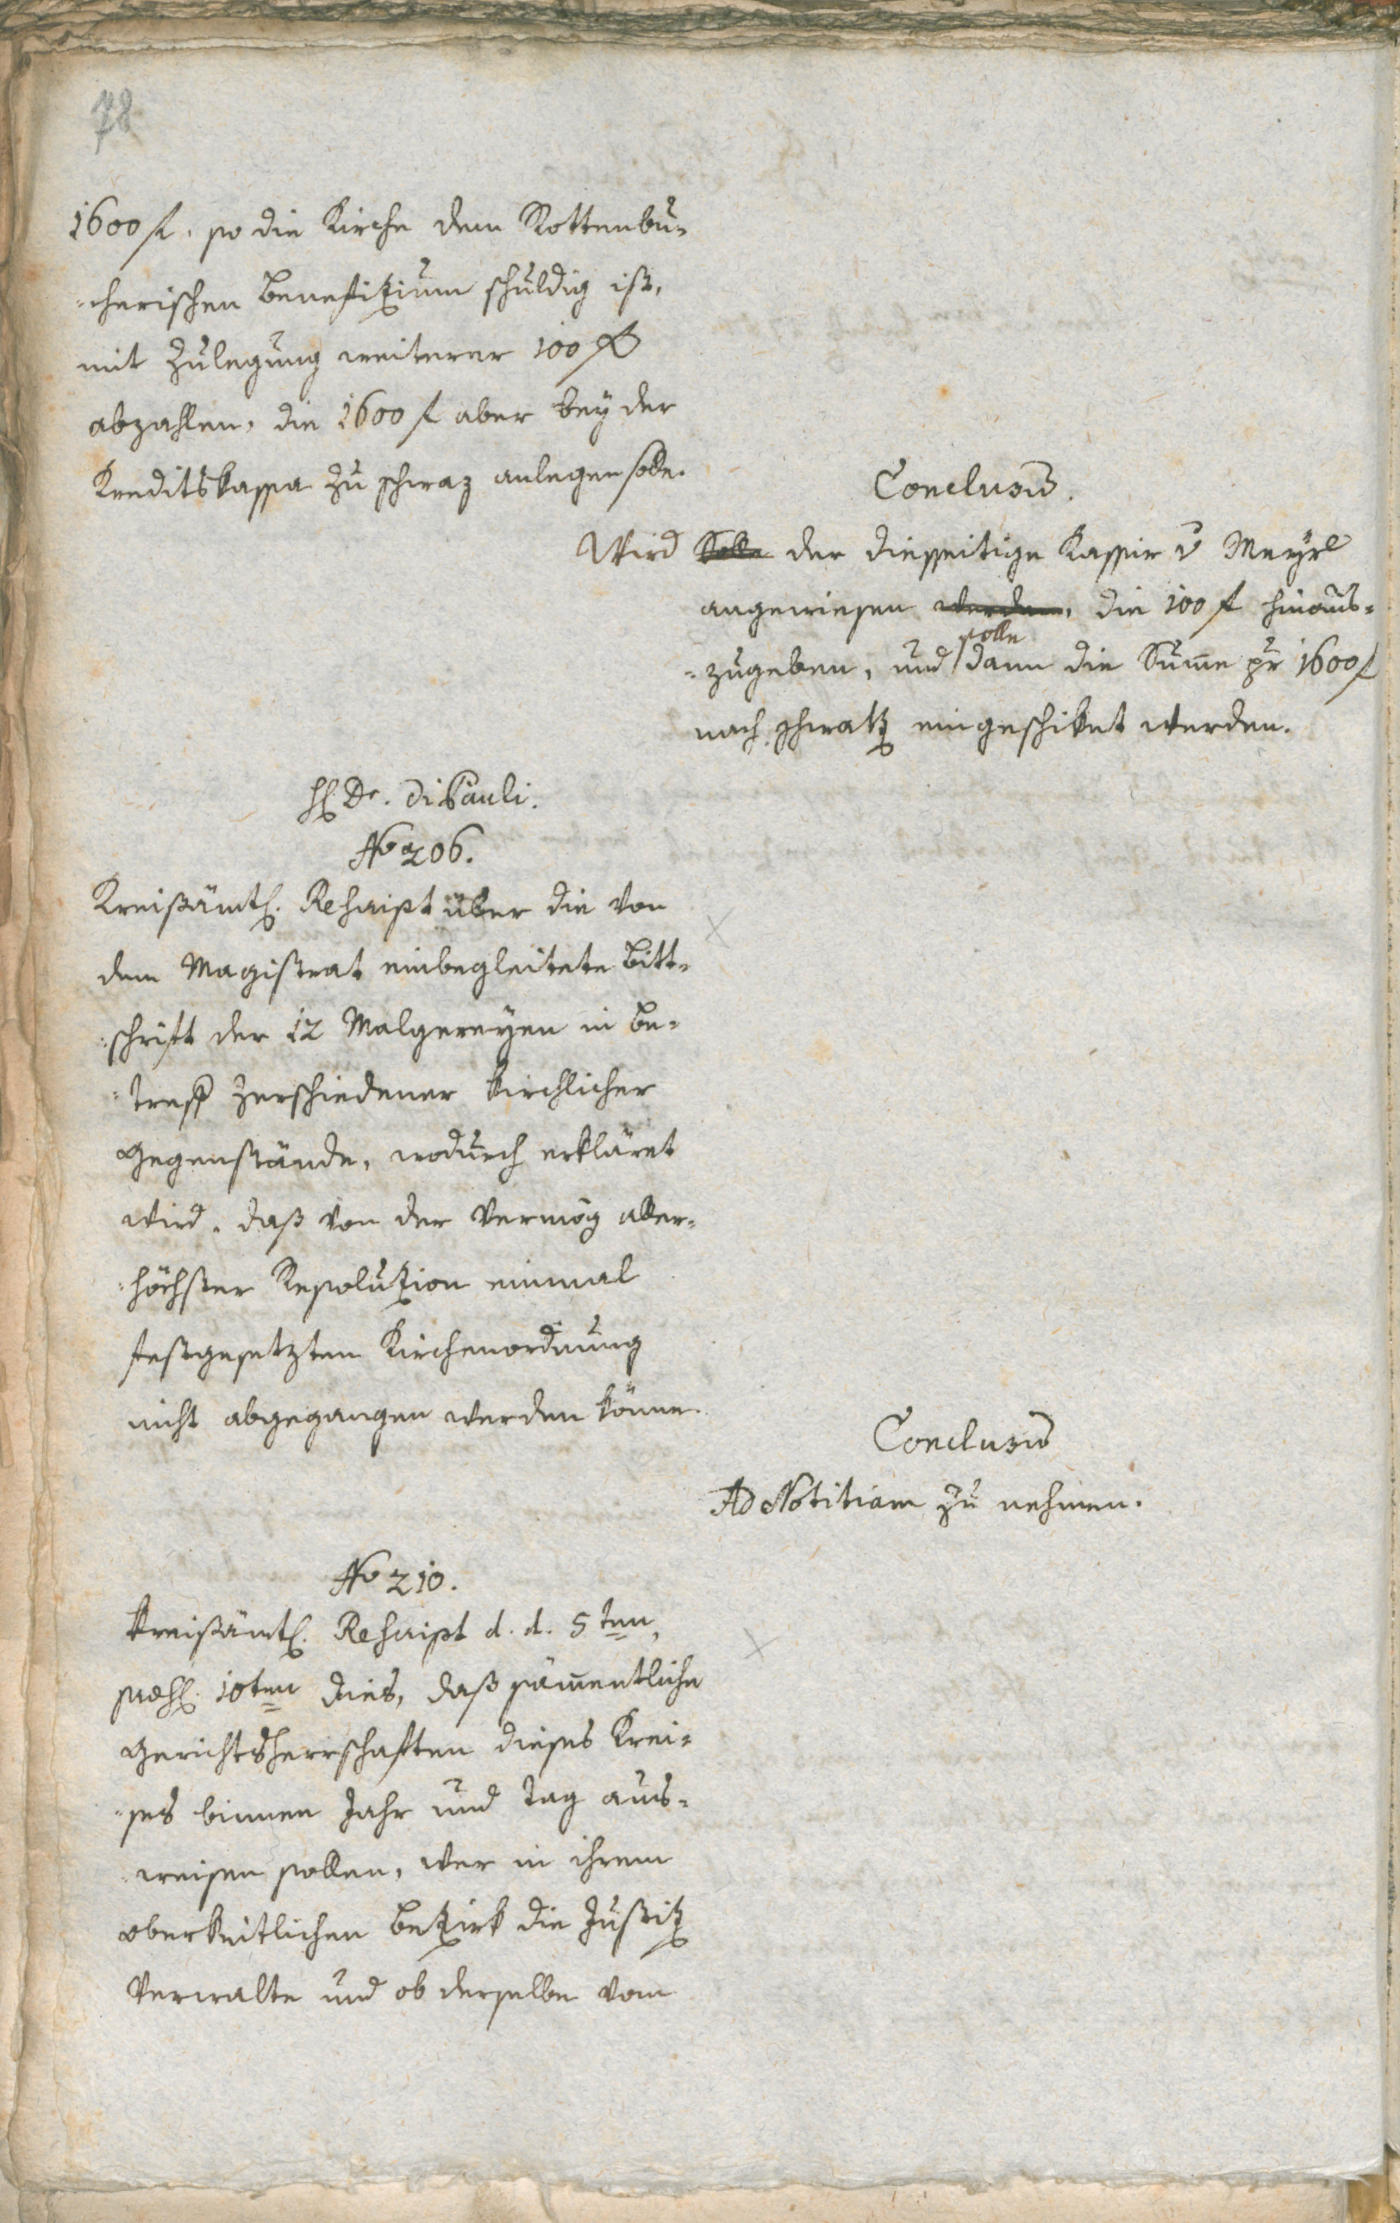 78
1600 f. so die Kirche dem Rottenbu-
-cherischen Benefizium schuldig ist,
mit Zulegung weiterer 100 f
abzahlen, die 1600 f aber bey der
Kreditskassa zu Schwaz anlegen solle.
Conclusum.
Wird Solle der diesseitige Kassier v Mayrl
angewiesen werden, die 100 f hinaus-
solle
-zugeben, und dann die Summe pr 1600 f
nach Schwatz eingeschiket werden.
H. Dr. DiPauli.
No 206.
Kreißämtl. Rescript über die von
dem Magistrat einbegleitete Bitt-
-schrift der 12 Malgereyen in Be-
-treff Zerschiedener kirchlicher
Gegenstände, wodurch erkläret
wird, daß von der vermög aller-
-höchster Resoluzion einmal
festgesetzten Kirchenordnung
nicht abgegangen werden könne.
Conclusum
Ad Notitiam zu nehmen.
No 210.
Kreißämtl. Rescript d. d. 5ten
10ten dies, daß sämmentliche
Gerichtsherrschaften dieses Krei-
-ses binnen Jahr und Tag aus-
weisen sollen, wer in ihrem
oberkeitlichen Bezirk die Justiz
verwalte und ob derselbe vom